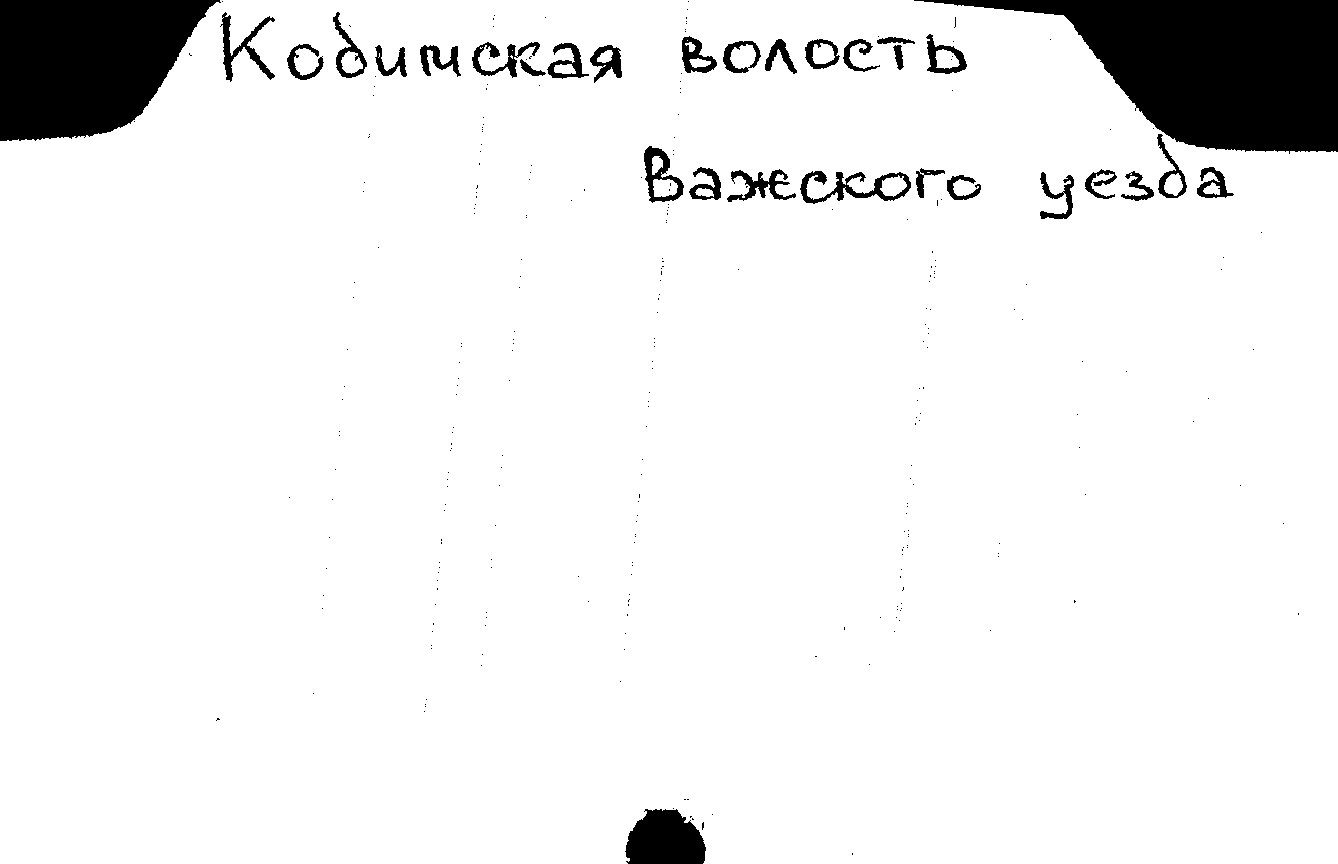 Кодимская волость
Важского уезда